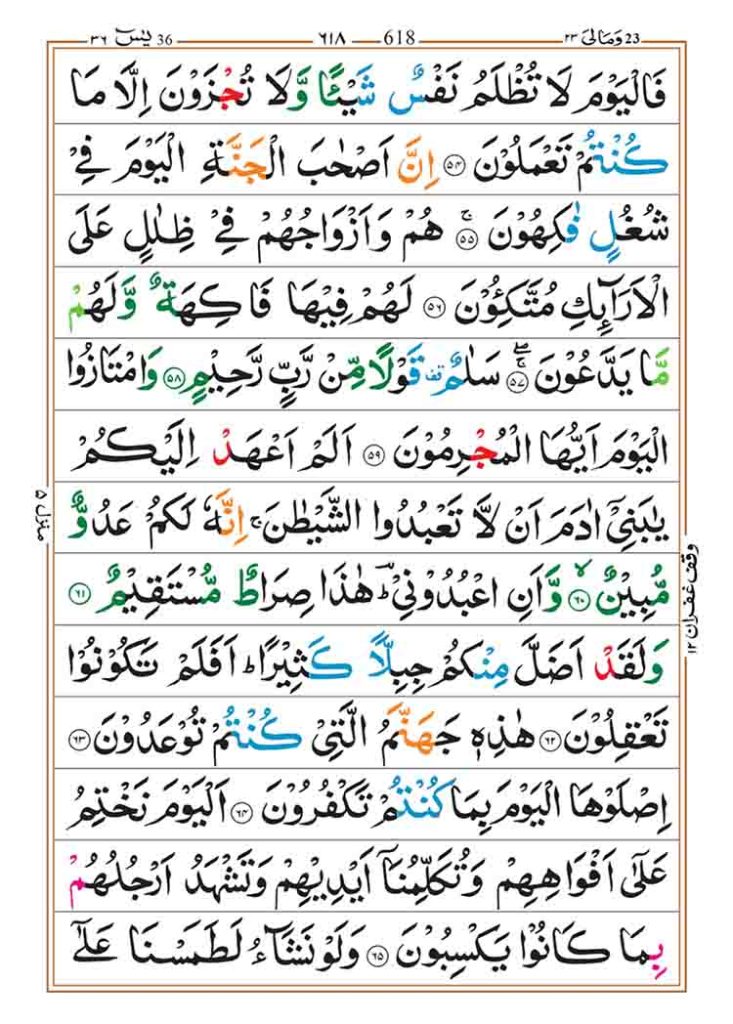 ٣٦ يٰسٓ 36 ٦١٨ 618 ٢٣ وَمَالِىَ 23
فَالْيَوْمَ لَا تُظْلَمُ نَفْسٌ شَيْـًٔا وَّلَا تُجْزَوْنَ اِلَّا مَا
كُنْتُمْ تَعْمَلُوْنَ ۝٥٤ اِنَّ اَصْحٰبَ الْجَنَّةِ الْيَوْمَ فِيْ
شُغُلٍ فٰكِهُوْنَ ۝٥٥ۚ هُمْ وَاَزْوَاجُهُمْ فِيْ ظِلٰلٍ عَلَى
الْاَرَآىِٕكِ مُتَّكِـُٔوْنَ ۝٥٦ لَهُمْ فِيْهَا فَاكِهَةٌ وَّلَهُمْ
مَّا يَدَّعُوْنَ ۝٥٧ۚۖ سَلٰمٌ قف قَوْلًا مِّنْ رَّبٍّ رَّحِيْمٍ ۝٥٨ وَامْتَازُوا
الْيَوْمَ اَيُّهَا الْمُجْرِمُوْنَ ۝٥٩ اَلَمْ اَعْهَدْ اِلَيْكُمْ
يٰبَنِيْٓ اٰدَمَ اَنْ لَّا تَعْبُدُوا الشَّيْطٰنَ ۚ اِنَّهٗ لَكُمْ عَدُوٌّ
مُّبِيْنٌ ۝٦٠ۙ وَّاَنِ اعْبُدُوْنِيْ ؕ هٰذَا صِرَاطٌ مُّسْتَقِيْمٌ ۝٦١
وَلَقَدْ اَضَلَّ مِنْكُمْ جِبِلًّا كَثِيْرًا ؕ اَفَلَمْ تَكُوْنُوْا
تَعْقِلُوْنَ ۝٦٢ هٰذِهٖ جَهَنَّمُ الَّتِيْ كُنْتُمْ تُوْعَدُوْنَ ۝٦٣
اِصْلَوْهَا الْيَوْمَ بِمَا كُنْتُمْ تَكْفُرُوْنَ ۝٦٤ اَلْيَوْمَ نَخْتِمُ
عَلٰٓى اَفْوَاهِهِمْ وَتُكَلِّمُنَآ اَيْدِيْهِمْ وَتَشْهَدُ اَرْجُلُهُمْ
بِمَا كَانُوْا يَكْسِبُوْنَ ۝٦٥ وَلَوْ نَشَآءُ لَطَمَسْنَا عَلٰٓى
منزل ٥
وقف غفران ١٢